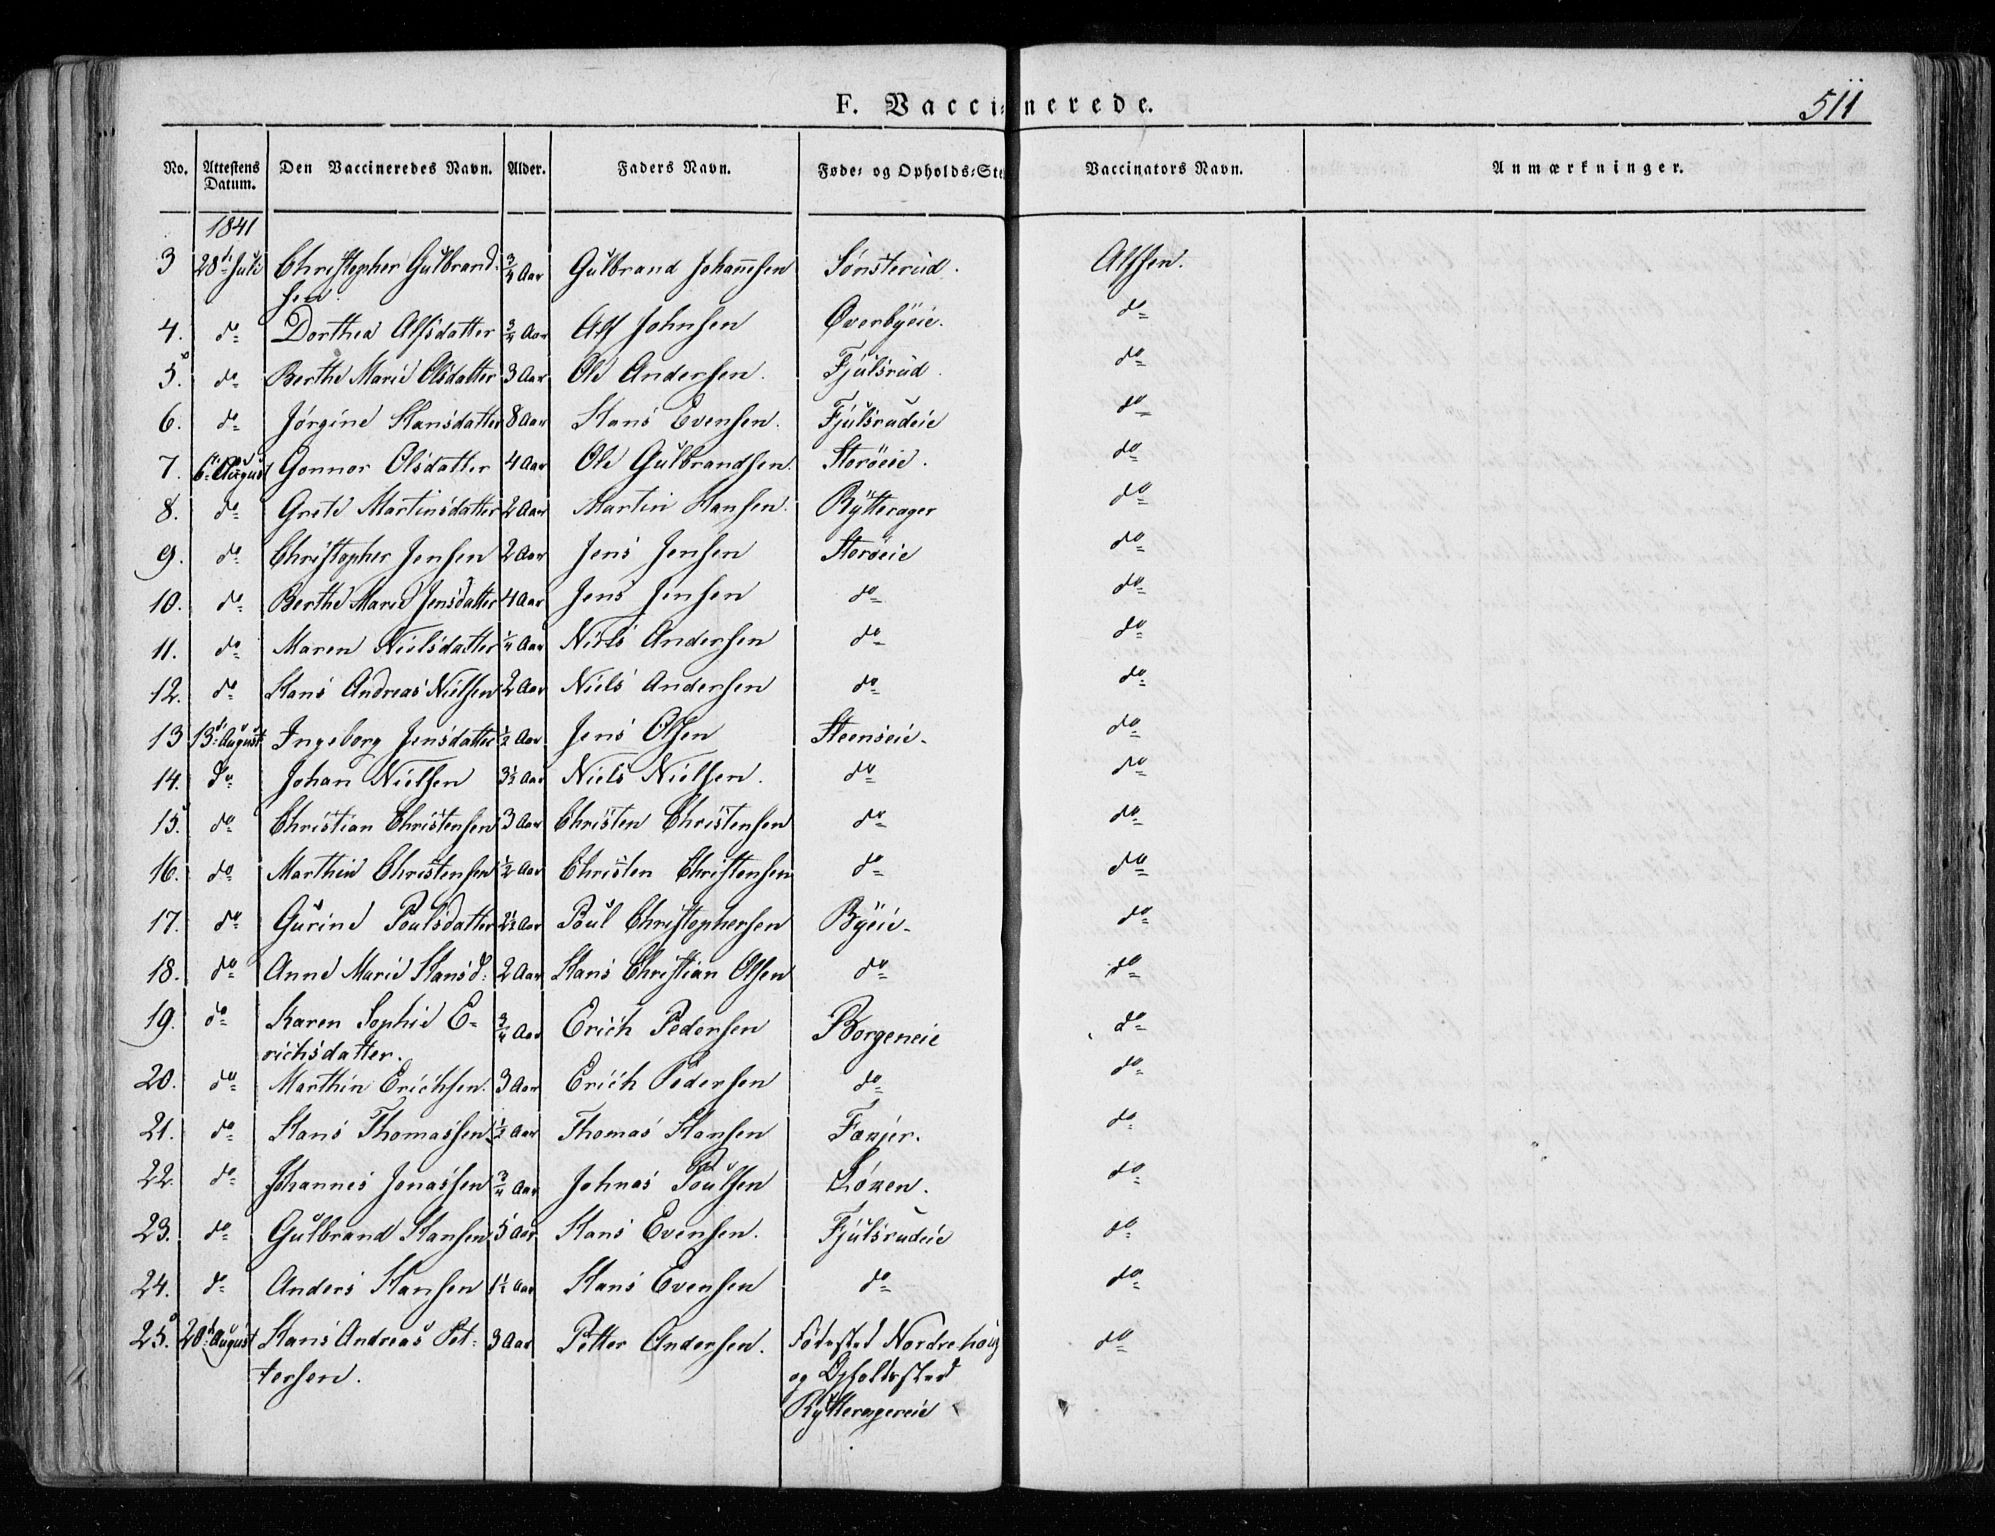 F. Vaccinerede.
511
No. Attestens Datum. Den Vaccineredes Navn. Alder. Faders Navn. Føde- og Opholds-Ste Vaccinators Navn. Anmærkninger.
1841
3 28d Juli Christopher Gulbrand- 3/4 Aar Gulbrand Johannesen Sønsterud. Alfsen.
sen.
4. do Dorthea Alfsdatter 3/4 Aar Alf Johnsen Øverbyeie. do
5. do Berthe Marie Olsdatter 3 Aar Ole Andersen. Fjulsrud. do
6. do Jørgine Hansdatter 8 Aar Hans Evensen. Fjulsrudeie do
7. 6te August Gonnor Olsdatter 4 Aar Ole Gulbrandsen. Storøeie. do
8. do Grete Martinsdatter 2 Aar Martin Hansen. Rytterager do
9. do Christopher Jensen 2 Aar Jens Jensen Storøeie do
10. do Berthe Marie Jensdatter 4 Aar Jens Jensen do do
11. do Maren Nielsdatter 1/4 Aar Niels Andersen do do
12. do Hans Andreas Nielsen 2 Aar Niels Andersen do do
13 13d August Ingeborg Jensdatter 1/2 Aar Jens Olsen Steenseie. do
14. do Johan Nielsen 3½ Aar Niels Nielsen. do do
15. do Christian Christensen 3 Aar Christen Christensen do do
16. do Marthin Christensen 1/2 Aar Christen Christensen do do
17. do Gurine Poulsdatter 2½ Aar Poul Christophersen Byeie. do
18. do Anne Marie Hansd. 2 Aar Hans Christian Olsen do do
19. do Karen Sophie E- 3/4 Aar Erich Pedersen Borgeneie do
richsdatter.
20. do Marthin Erichsen. 3 Aar Erich Pedersen do do
21. do Hans Thomassen 1/2 Aar Thomas Hansen Fæxjer. do
22. do Johannes Jonassen 3/4 Aar Johnas Poulsen Løxen. do
23. do Gulbrand Hansen 5 Aar Hans Evensen. Fjulsrudeie do
24. do Anders Hansen 1½ Aar Hans Evensen do do
25. 20d August Hans Andreas Pet- 3 Aar Petter Andersen. Fødested Nordrehoug do
tersen. og Opholdssted
Rytteragereie